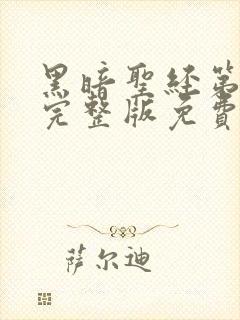 黑暗聖經第
完整版免費
萨尔迪